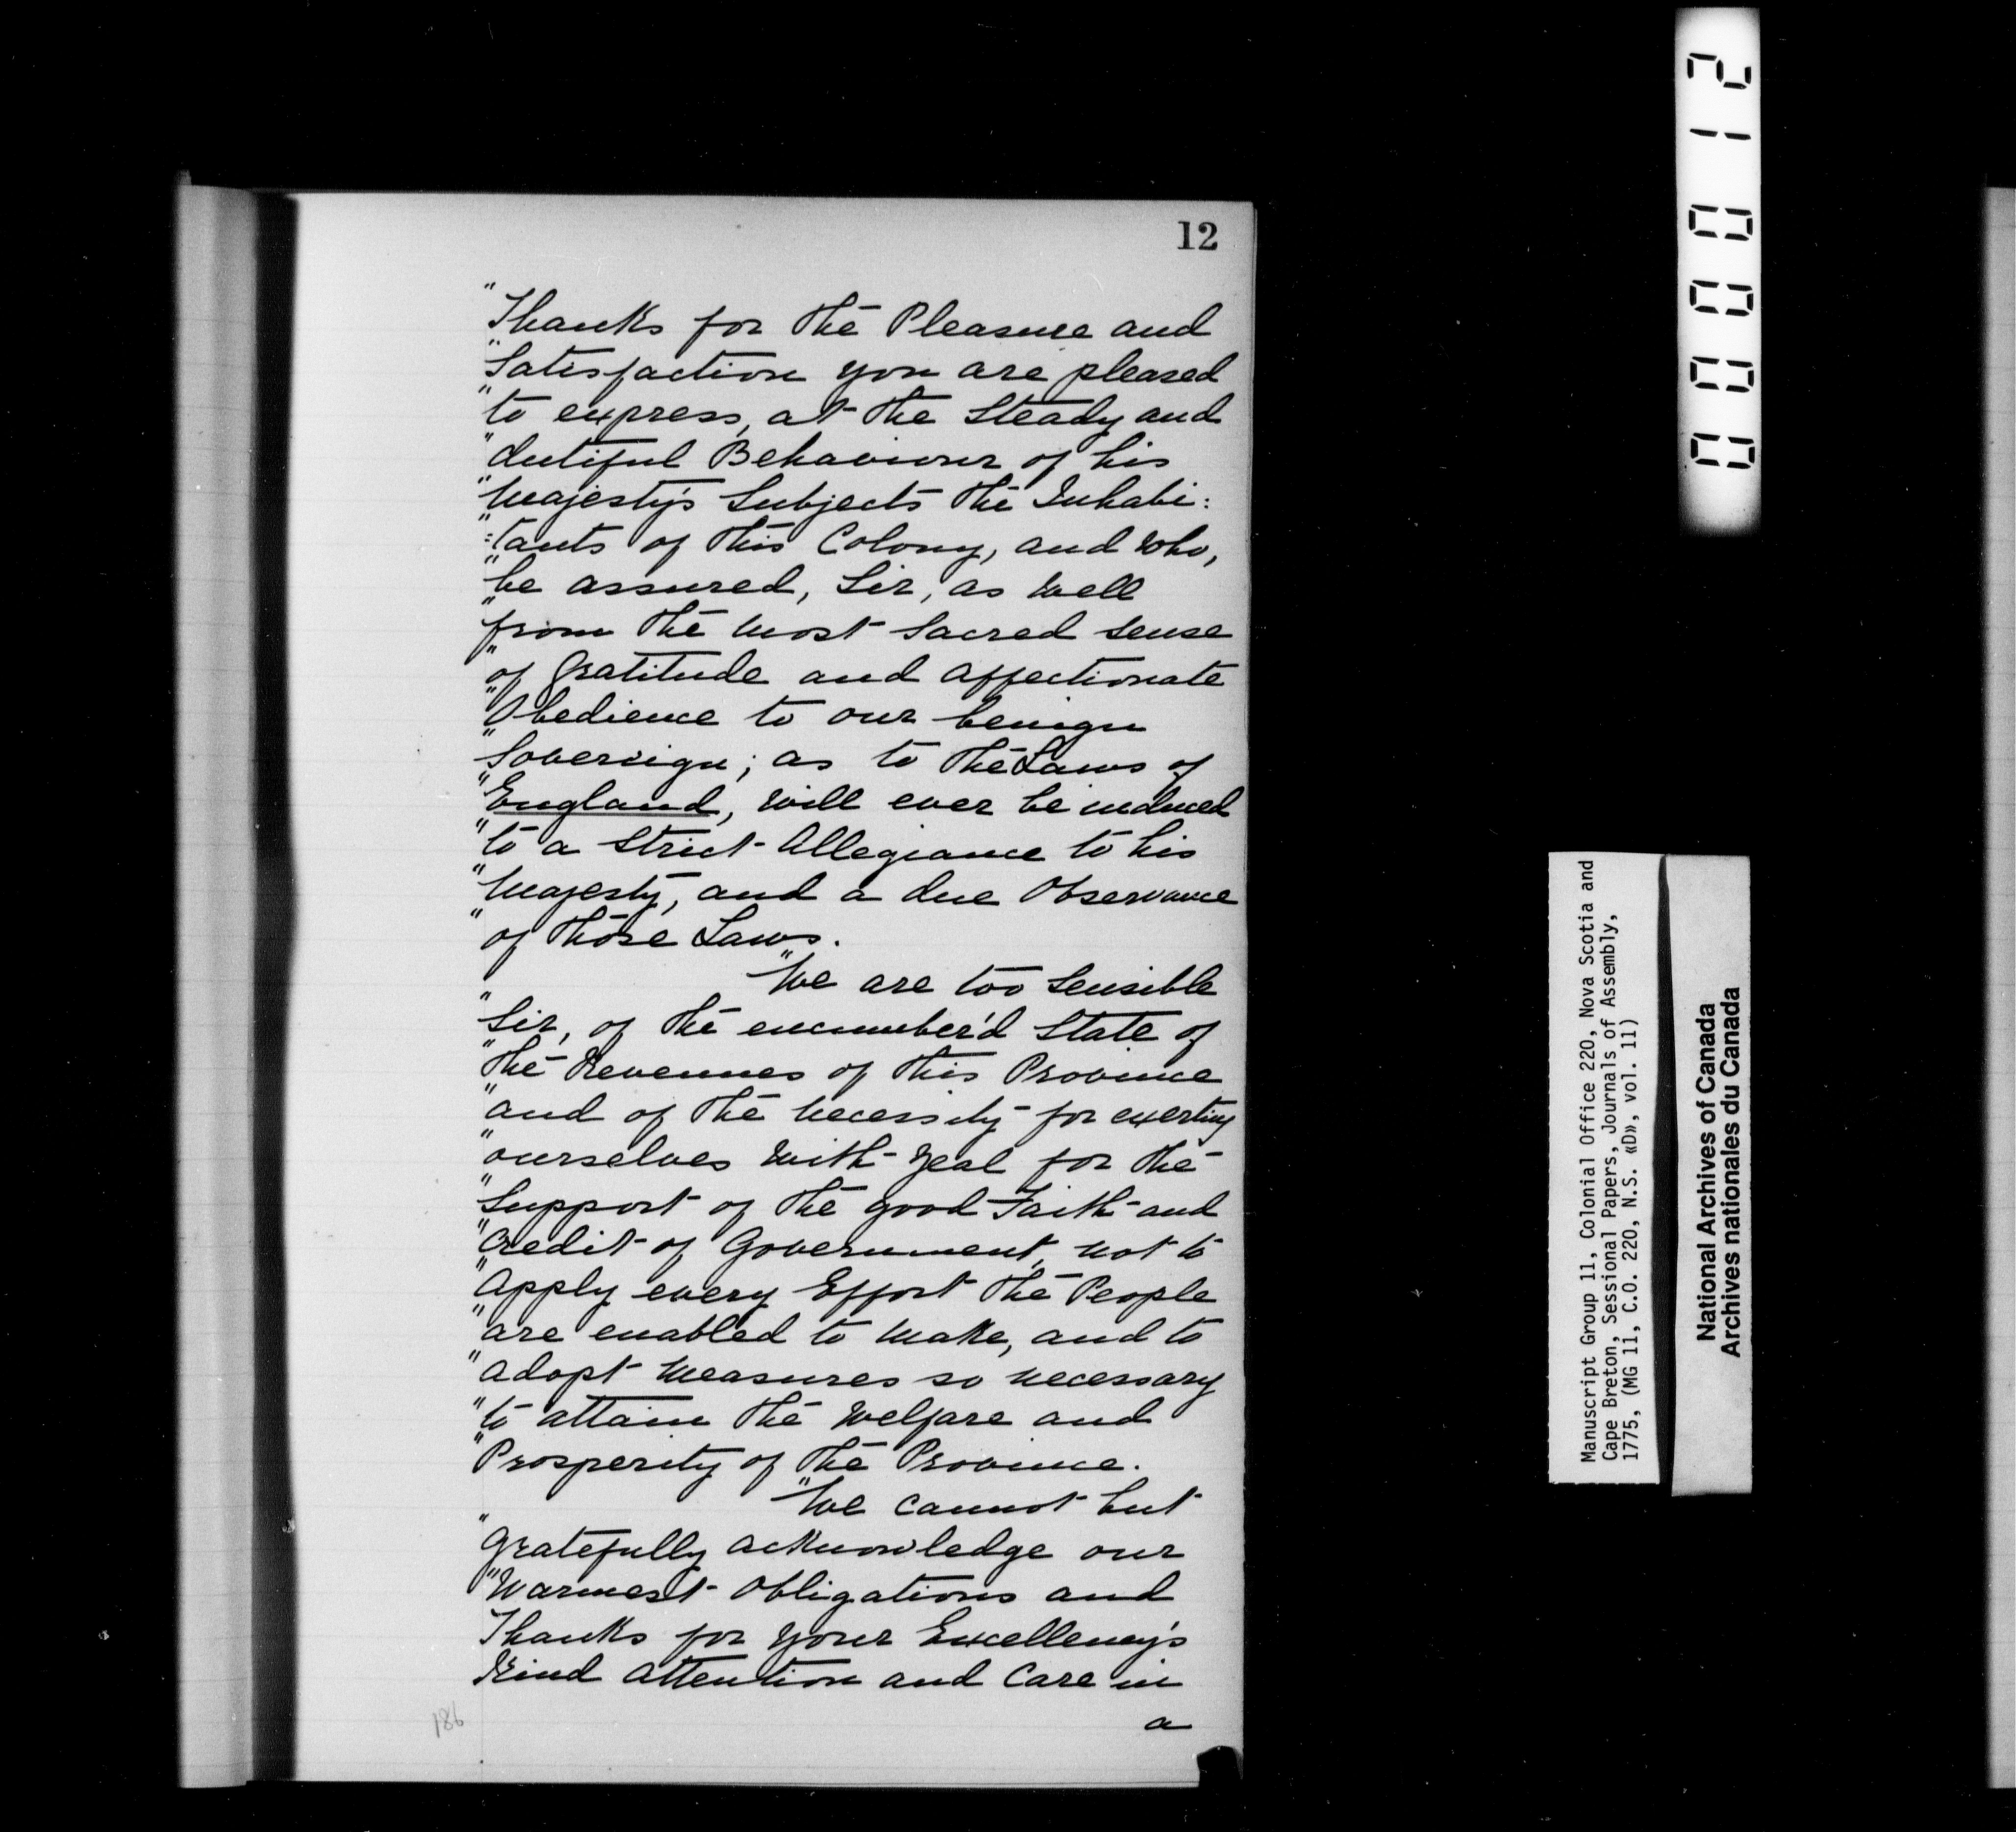 12
"Thanks for the Pleasure and
"Satisfaction you are pleased
"to express, at the Steady and
"dutiful Behaviour of his
"Majesty's Subjects the Inhabi:
":tants of this Colony, and who,
"be assured, Sir, as well
"from the most Sacred sense
"of Gratitude and affectionate
"Obedience to our benign
"Sovereign; as to the Laws of
"England, will ever be induced
"to a Strict Allegiance to his
"Majesty, and a due Observance
"of those Laws.
"We are too Sensible
"Sir, of the encumber'd State of
"the Revenues of this Province
"and of the Necessity for exerting
"ourselves with Zeal for the
"Support of the good Faith and
"Credit of Government, not to
"apply every Effort the People
"are enabled to make, and to
"adopt Measures so necessary
"to attain the Welfare and
"Prosperity of the Province.
"We cannot but
"gratefully acknowledge our
"Warmest Obligations and
Thanks for your Excellency's
Kind attention and Care in
a
186
000012
Manuscript Group 11, Colonial Office 220, Nova Scotia and
Cape Breton, Sessional Papers, Journals of Assembly,
1775, (MG 11, C.O. 220, N.S. «D», vol. 11)
National Archives of Canada
Archives nationales du Canada